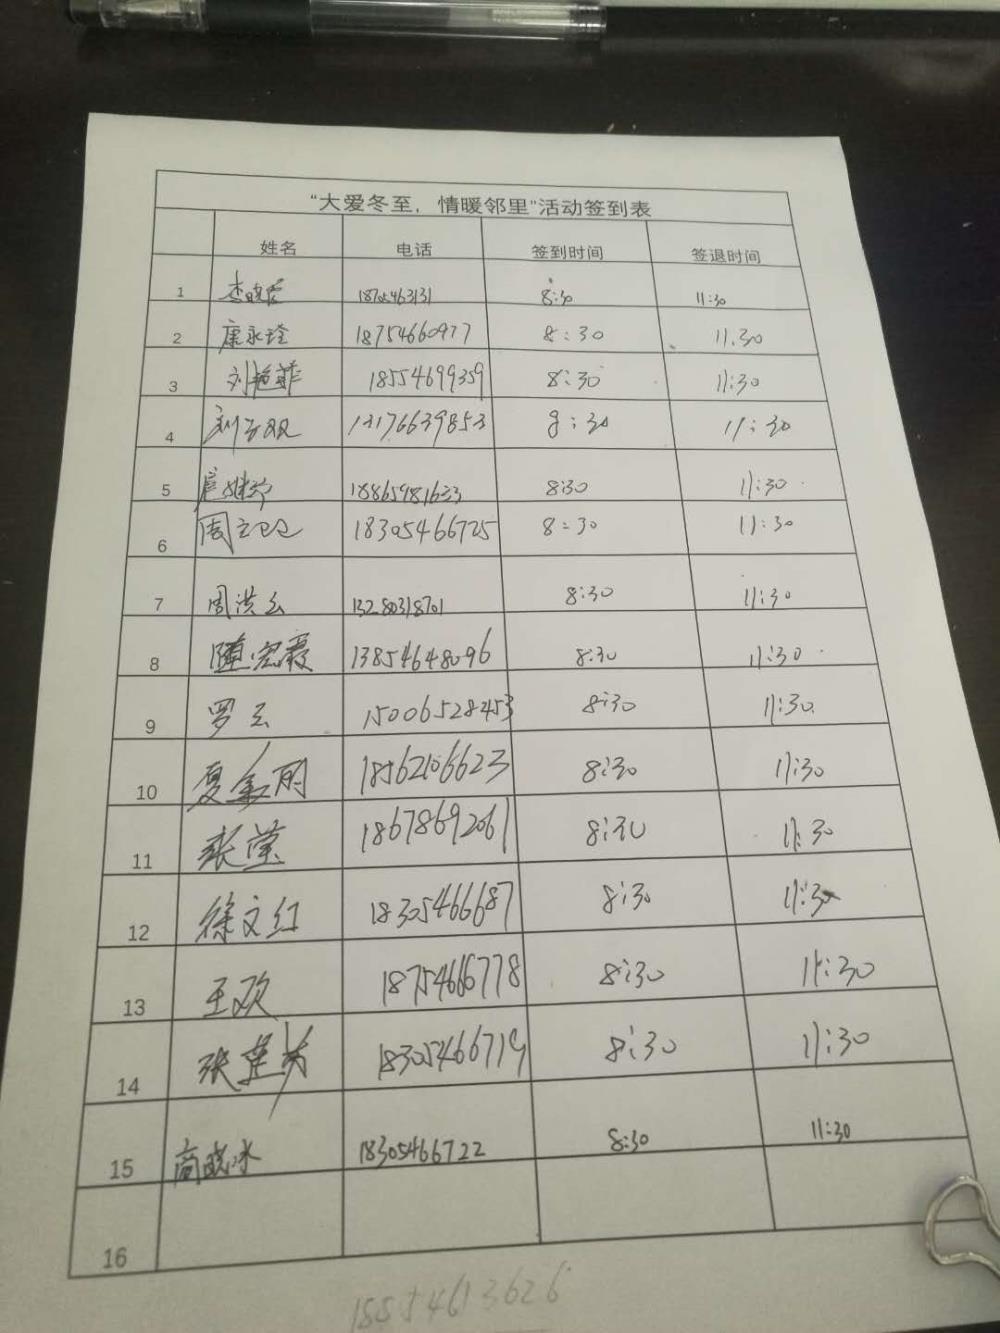 “大爱冬至，情暖邻里”活动签到表
姓名 电话 签到时间 签退时间
1 李晓霞 8:30 11:30
2 康永琴 18754660977 8:30 11.30
3 刘艳菲 18554699359 8:30 11:30
4 13176639853 8:30 11:30
5 18865981633 8:30 11:30
6 周立卫 18305466725 8:30 11:30
7 周洪云 13280318701 8:30 11:30
8 陈宏霞 13854648096 8:30 11:30
9 罗云 15006528453 8:30 11:30
10 夏金丽 18562106623 8:30 11:30
11 张莹 18678692061 8:30 11:30
12 徐文红 18305466687 8:30 11:30
13 王欢 18754666778 8:30 11:30
14 张建芳 18305466719 8:30 11:30
15 商晓冰 18305466722 8:30 11:30
16
18854613626